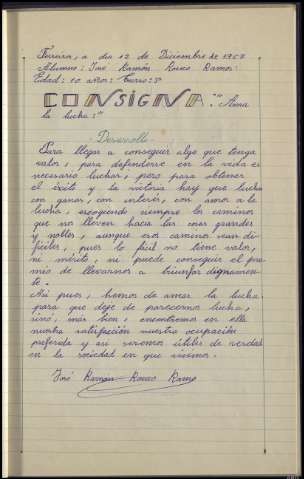 a dia 12 de Diciembre de 1957
Alumno: José Ramón Rozco Ramos
Edad: 10 años: Curso: 3º
CONSIGNA: "Ama
la lucha:"
Desarrollo
Para llegar a conseguir algo que tenga
valor, para defenderse en la vida es
necesario luchar; pero para obtener
el éxito y la victoria hay que luchar
con ganas, con interés, con amor a la
lucha, escogiendo siempre los caminos
que nos lleven hacia las cosas grandes
y nobles, aunque esos caminos sean di-
fíciles, pues lo fácil no tiene valor,
ni mérito, ni puede conseguir el pre-
mio de llevarnos a triunfar dignamen-
te.
Así pues, hemos de amar la lucha
para que deje de parecernos lucha,
sinó, más bien, encontremos en ella
nuestra satisfación nuestra ocupación
preferida y así seremos útiles de verdad
en la sociedad en que vivimos.
José Ramón Rozco Ramos